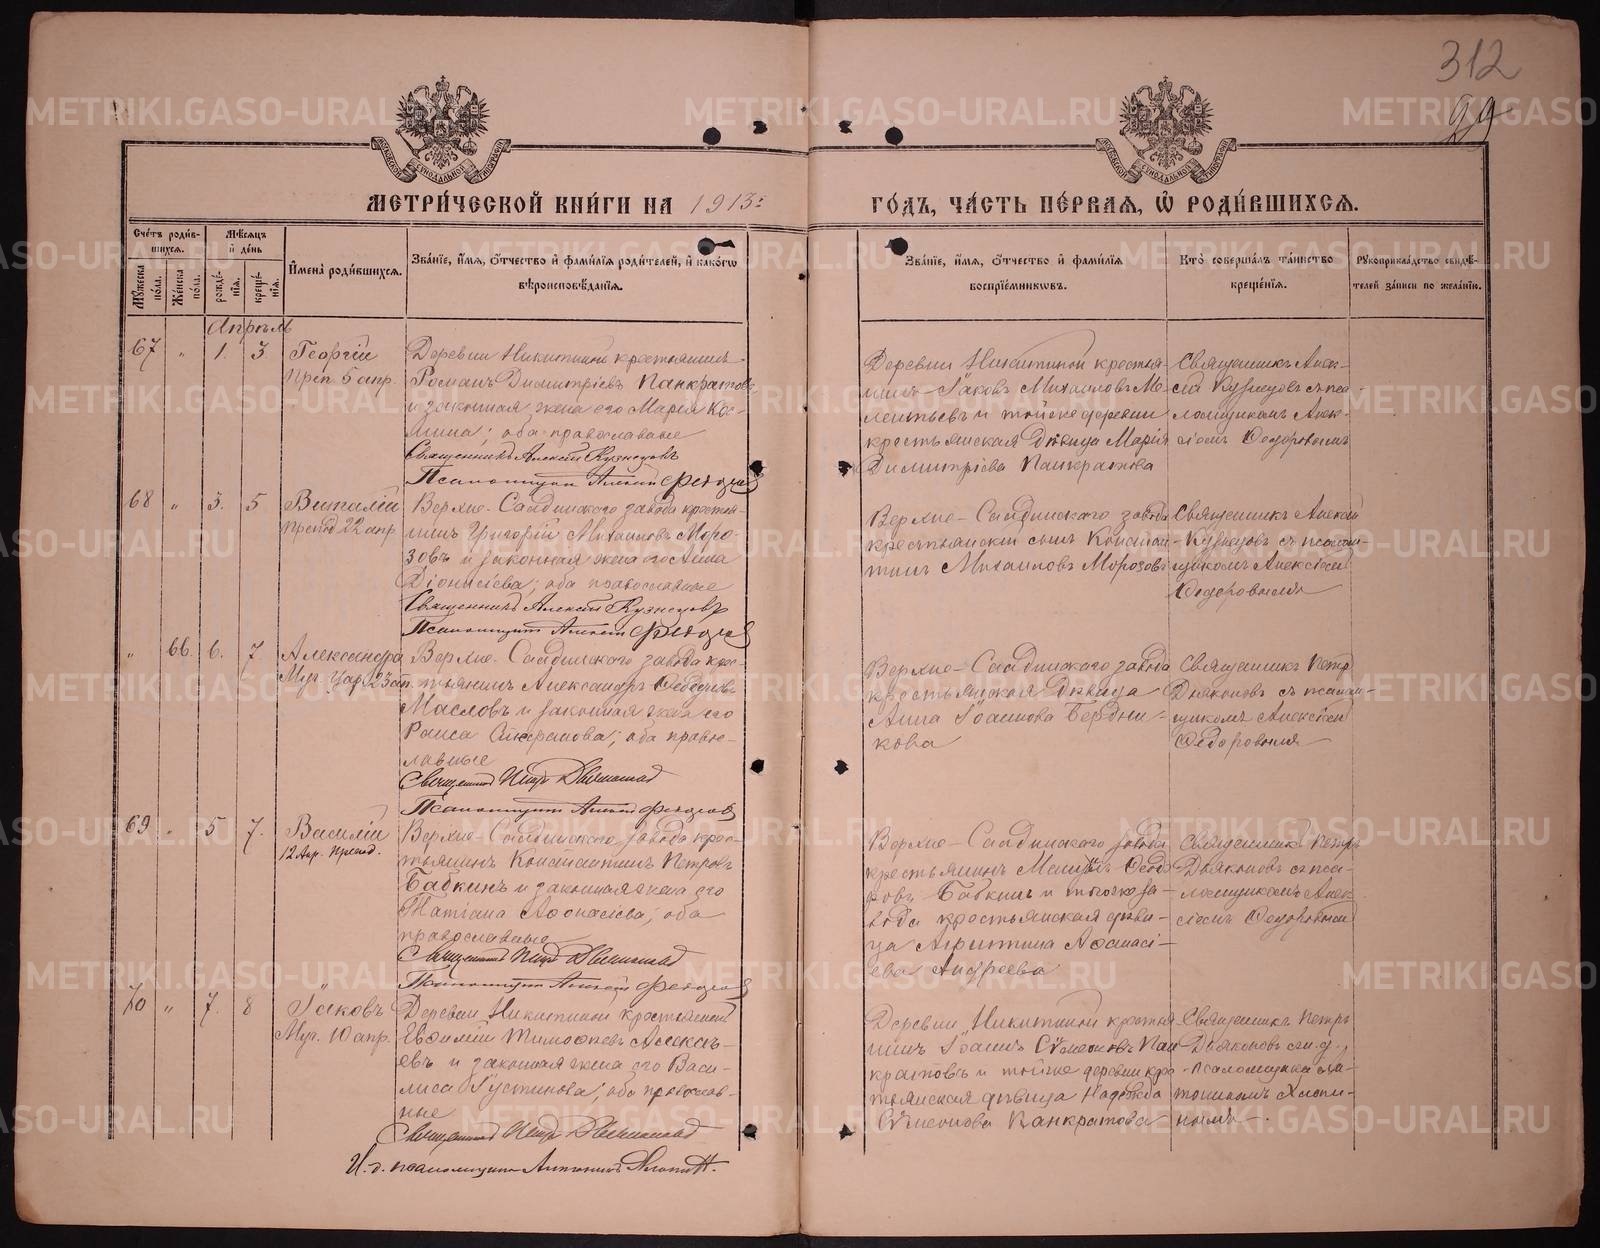 312
99
МЕТРИ́ЧЕСКОЙ КНИ́ГИ НА 1913 ГО́ДЪ, ЧА́СТЬ ПЕ́РВАЯ, Ѡ РОДИ́ВШИХСЯ.
Счетъ родив-
шихся.
Мѣсяцъ
и день
Мужеска пола.
Женска пола.
рожде-
нія.
креще-
нія.
Имена родившихся.
Званіе, имя, отчество и фамилія родителей, и какого
вѣроисповѣданія.
Званіе, имя, отчество и фамилія
воспріемниковъ.
Кто совершалъ таинство
крещенія.
Рукоприкладство свидѣ-
телей записи по желанію.
Апрѣль
67 " 1. 3. Георгій
Преп. 5 апр.
Деревни Никитиной крестьянинъ
Романъ Димитріевъ Панкратовъ
и законная жена его Марія Кос-
мина; оба православные
Священникъ Алексій Кузнецовъ
Псаломщикъ Алексій Федоровъ
Деревни Никитиной крестья-
нинъ Іаковъ Михаиловъ Ме-
лентьевъ и тойже деревни
крестьянская дѣвица Марія
Димитріева Панкратова
Священникъ Алек-
сій Кузнецовъ съ пса-
ломщикомъ Алек-
сіемъ Федоровымъ
68 " 3. 5 Виталій
Препод 22 апр.
Верхне-Салдинскаго завода крестья-
нинъ Григорій Михаиловъ Моро-
зовъ и законная жена его Анна
Діонисіева; оба православные
Священникъ Алексій Кузнецовъ
Псаломщикъ Алексій Федоровъ
Верхне-Салдинскаго завода
крестьянскій сынъ Констан-
тинъ Михаиловъ Морозовъ
Священникъ Алексій
Кузнецовъ съ псалом-
щикомъ Алексіемъ
Федоровымъ
" 66. 6. 7 Александра
Муч. Цар. 23 ап.
Верхне-Салдинскаго завода крес-
тьянинъ Александръ Феодоровъ
Масловъ и законная жена его
Раиса; оба право-
славные
Священникъ Петръ Дьяконовъ
Псаломщикъ Алексій Федоровъ
Верхне-Салдинскаго завода
крестьянская дѣвица
Анна Іоаннова Бердни-
кова
Священникъ Петръ
Дьяконовъ съ псалом-
щикомъ Алексіемъ
Федоровымъ
69 " 5 7. Василій
12 Апр. Препод.
Верхне-Салдинскаго завода крес-
тьянинъ Константинъ Петровъ
Бабкинъ и законная жена его
Татіана Афонасіева; оба
православные
Священникъ Петръ Дьяконовъ
Псаломщикъ Алексій Федоровъ
Верхне-Салдинскаго завода
крестьянинъ Феодо-
ровъ Бабкинъ и тогоже за-
вода крестьянская дѣви-
ца Агриппина Афанасі-
ева Андреева
Священникъ Петръ
Дьяконовъ съ пса-
ломщикомъ Алек-
сіемъ Федоровымъ
70 " 7. 8 Іаковъ
Муч. 10 апр.
Деревни Никитиной крестьянинъ
Евфимій Тимофеевъ Алексѣ-
евъ и законная жена его Васи-
лиса Іустинова; оба православ-
ные
Священникъ Петръ Дьяконовъ
И. д. псаломщика Антонинъ
Деревни Никитиной крестья-
нинъ Іоаннъ Сѵмеоновъ Пан-
кратовъ и тойже деревни крес-
тьянская дѣвица Надежда
Сѵмеонова Панкратова
Священникъ Петръ
Дьяконовъ съ и. д.
псаломщика Ан-
тониномъ